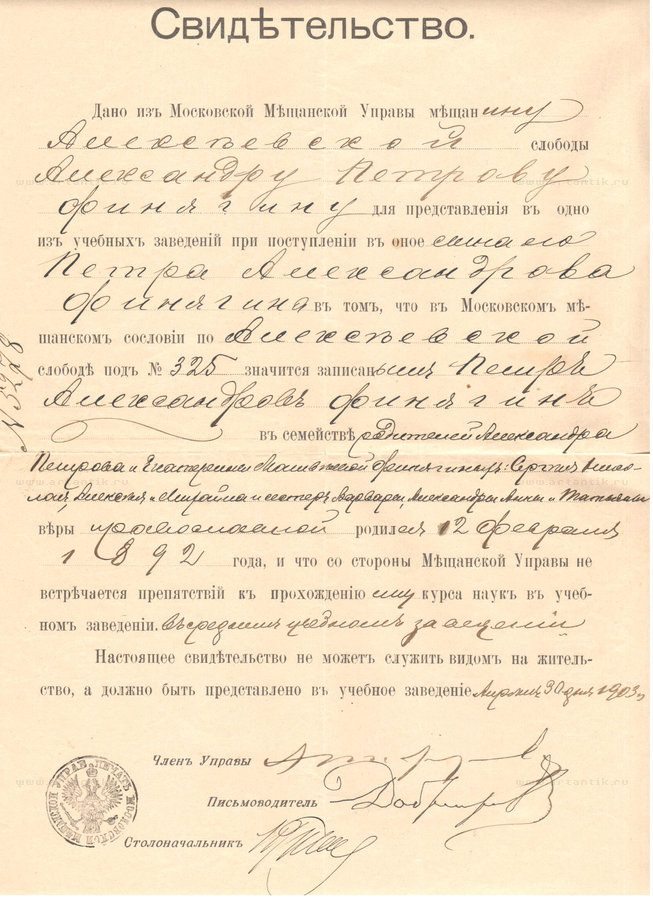 Свидѣтельство.
Дано изъ Московской Мѣщанской Управы мѣщанину
Алексѣевской слободы
Александру Петрову
Финягину для представленія въ одно
изъ учебныхъ заведеній при поступленіи въ оное сына его
Петра Александрова
Финягина въ томъ, что въ Московскомъ мѣ-
щанскомъ сословіи по Алексѣевской
слободѣ подъ № 325 значится записаннымъ Петръ
Александровъ Финягинъ
въ семействѣ родителей Александра
Петрова и Екатерины Финягиныхъ: Сергѣя, Нико-
лая, Алексѣя и Михайла и сестеръ Варвары, Александры, Анны и Татьяны
вѣры православной родился 12 февраля
1892 года, и что со стороны Мѣщанской Управы не
встрѣчается препятствій къ прохожденію ему курса наукъ въ учеб-
номъ заведеніи. въ среднемъ учебномъ заведеніи
Настоящее свидѣтельство не можетъ служить видомъ на житель-
ство, а должно быть представлено въ учебное заведеніе Апрѣля 30 дня 1903 г.
№ 3278
Членъ Управы
Письмоводитель
Столоначальникъ
ПЕЧАТЬ МОСКОВСКОЙ МѢЩАНСКОЙ УПРАВЫ
www.artantik.ru